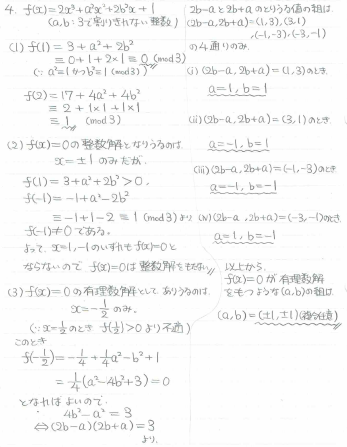 4. f(x) = 2x³ + a²x² + 2b²x + 1
(a, b : 3で割りきれない整数)
(1) f(1) = 3 + a² + 2b²
≡ 0 + 1 + 2×1 ≡ 0 (mod 3)
(∵ a² ≡ 1 かつ b² ≡ 1 (mod 3))
f(2) = 17 + 4a² + 4b²
≡ 2 + 1×1 + 1×1
≡ 1 (mod 3)
(2) f(x) = 0 の整数解となりうるのは
x = ±1 のみだが、
f(1) = 3 + a² + 2b² > 0,
f(-1) = -1 + a² - 2b²
≡ -1 + 1 - 2 ≡ 1 (mod 3) より
f(-1) ≠ 0 である。
よって、x = 1, -1 のいずれも f(x) = 0 と
ならないので f(x) = 0 は整数解をもたない
(3) f(x) = 0 の有理数解としてありうるのは
x = -1/2 のみ。
(∵ x = 1/2 のとき f(1/2) > 0 より不適)
このとき
f(-1/2) = -1/4 + 1/4 a² - b² + 1
= 1/4 (a² - 4b² + 3) = 0
となればよいので、
4b² - a² = 3
⇔ (2b-a)(2b+a) = 3
より、
2b-a と 2b+a のとりうる値の組は
(2b-a, 2b+a) = (1, 3), (3, 1)
, (-1, -3), (-3, -1)
の4通りのみ。
(i) (2b-a, 2b+a) = (1, 3) のとき
a = 1, b = 1
(ii) (2b-a, 2b+a) = (3, 1) のとき
a = -1, b = 1
(iii) (2b-a, 2b+a) = (-1, -3) のとき
a = -1, b = -1
(iv) (2b-a, 2b+a) = (-3, -1) のとき
a = 1, b = -1
以上から、
f(x) = 0 が有理数解
をもつような (a, b) の組は
(a, b) = (±1, ±1) (複号任意)